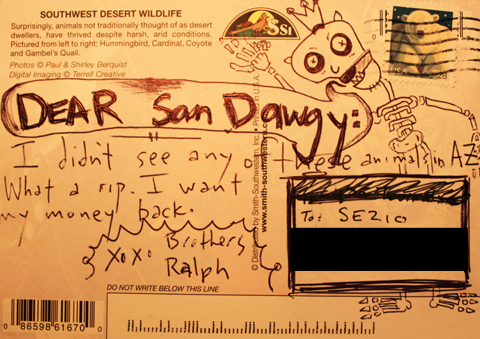 SOUTHWEST DESERT WILDLIFE
Surprisingly, animals not traditionally thought of as desert
dwellers, have thrived despite harsh, arid conditions.
Pictured from left to right: Hummingbird, Cardinal, Coyote
and Gambel's Quail.
Photos © Paul & Shirley Berquist
Digital Imaging © Terrell Creative
SSI
DEAR San Dawgy:
I didn't see any of these animals in AZ.
What a rip. I want
my money back.
XOXO Brothers
Ralph
To: SEZIO
© Distributed by Smith-Southwestern, Inc. • Printed in U.S.A.
www.smith-southwestern.com
DO NOT WRITE BELOW THIS LINE
0 86598 61670 0